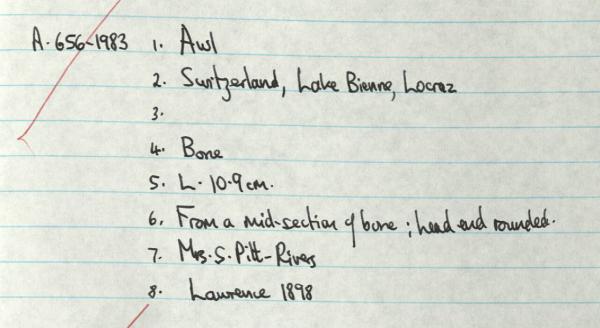 A.656-1983 1. Awl
2. Switzerland, Lake Bienne, Locraz
3.
4. Bone
5. L. 10.9 cm.
6. From a mid-section of bone; head end rounded.
7. Mrs. S. Pitt-Rivers
8. Lawrence 1898